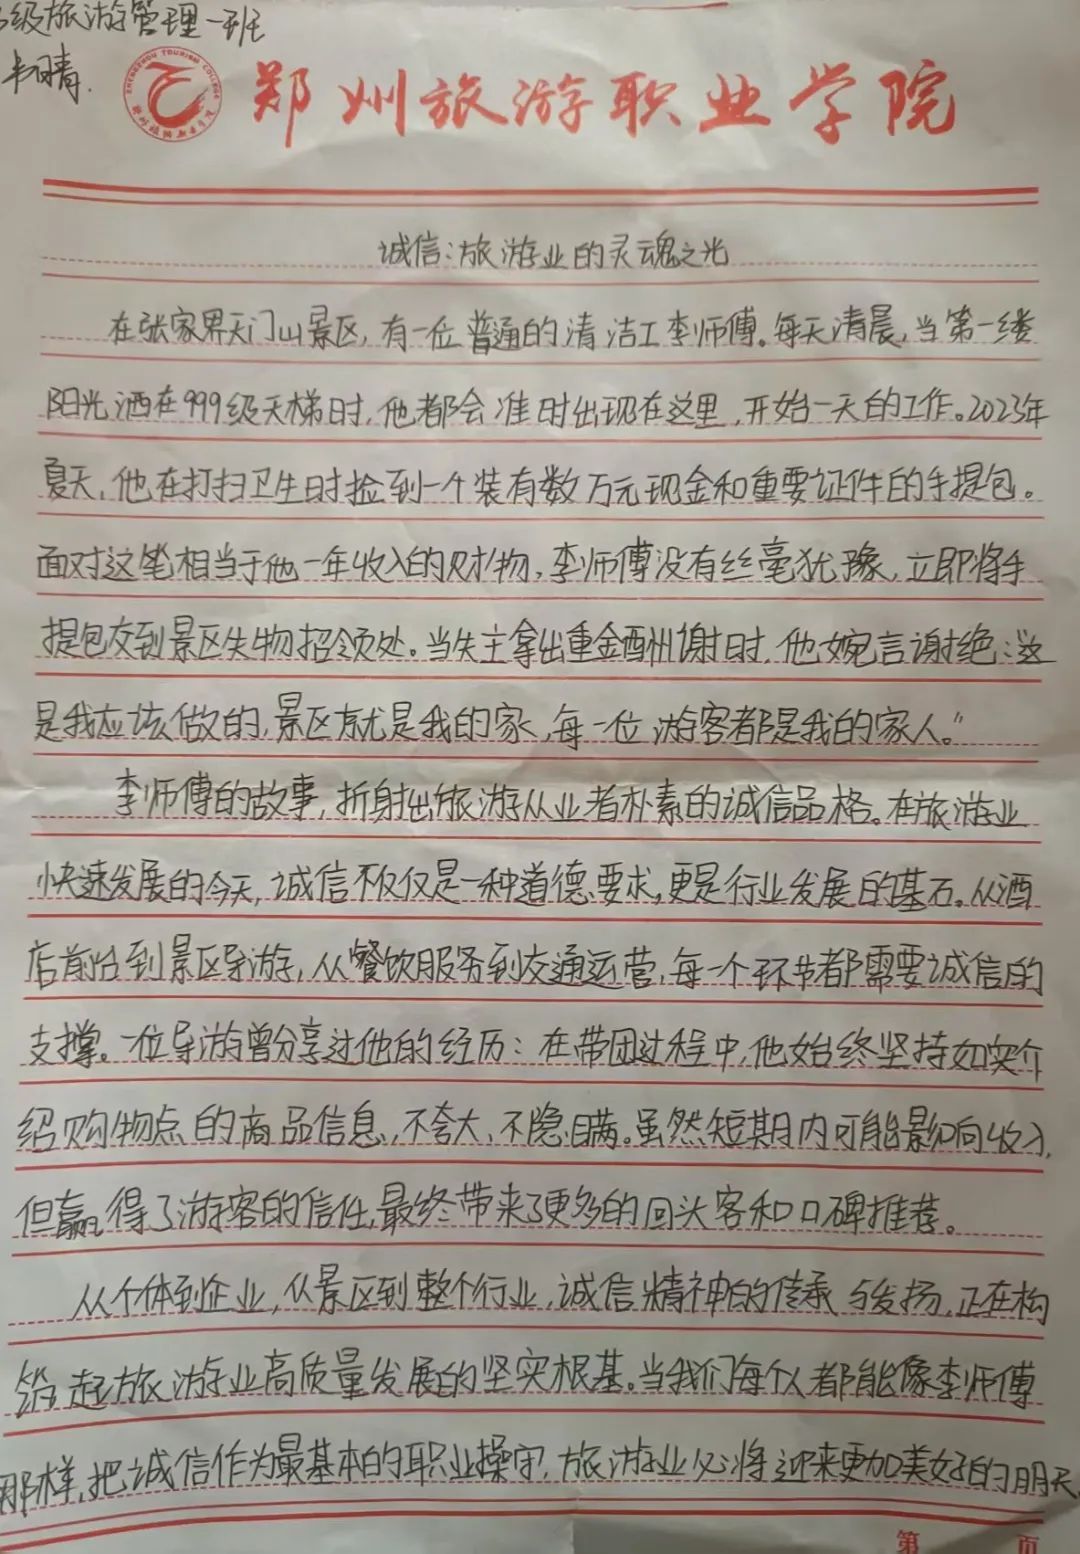 级旅游管理一班
晴.
ZHENGZHOU TOURISM COLLEGE
郑州旅游职业学院
诚信:旅游业的灵魂之光
在张家界天门山景区,有一位普通的清洁工李师傅。每天清晨,当第一缕
阳光洒在999级天梯时,他都会准时出现在这里,开始一天的工作。2023年
夏天,他在打扫卫生时捡到一个装有数万元现金和重要证件的手提包。
面对这笔相当于他一年收入的财物,李师傅没有丝毫犹豫,立即将手
提包交到景区失物招领处。当失主拿出重金酬谢时,他婉言谢绝:"这
是我应该做的,景区就是我的家,每一位游客都是我的家人。"
李师傅的故事,折射出旅游从业者朴素的诚信品格。在旅游业
快速发展的今天,诚信不仅仅是一种道德要求,更是行业发展的基石。从酒
店前台到景区导游,从餐饮服务到交通运营,每一个环节都需要诚信的
支撑。一位导游曾分享过他的经历:在带团过程中,他始终坚持如实介
绍购物点的商品信息,不夸大、不隐瞒。虽然短期内可能影响收入,
但赢得了游客的信任,最终带来了更多的回头客和口碑推荐。
从个体到企业,从景区到整个行业,诚信精神的传承与发扬,正在构
筑起旅游业高质量发展的坚实根基。当我们每个人都能像李师傅
那样,把诚信作为最基本的职业操守,旅游业必将迎来更加美好的明天。
第 页